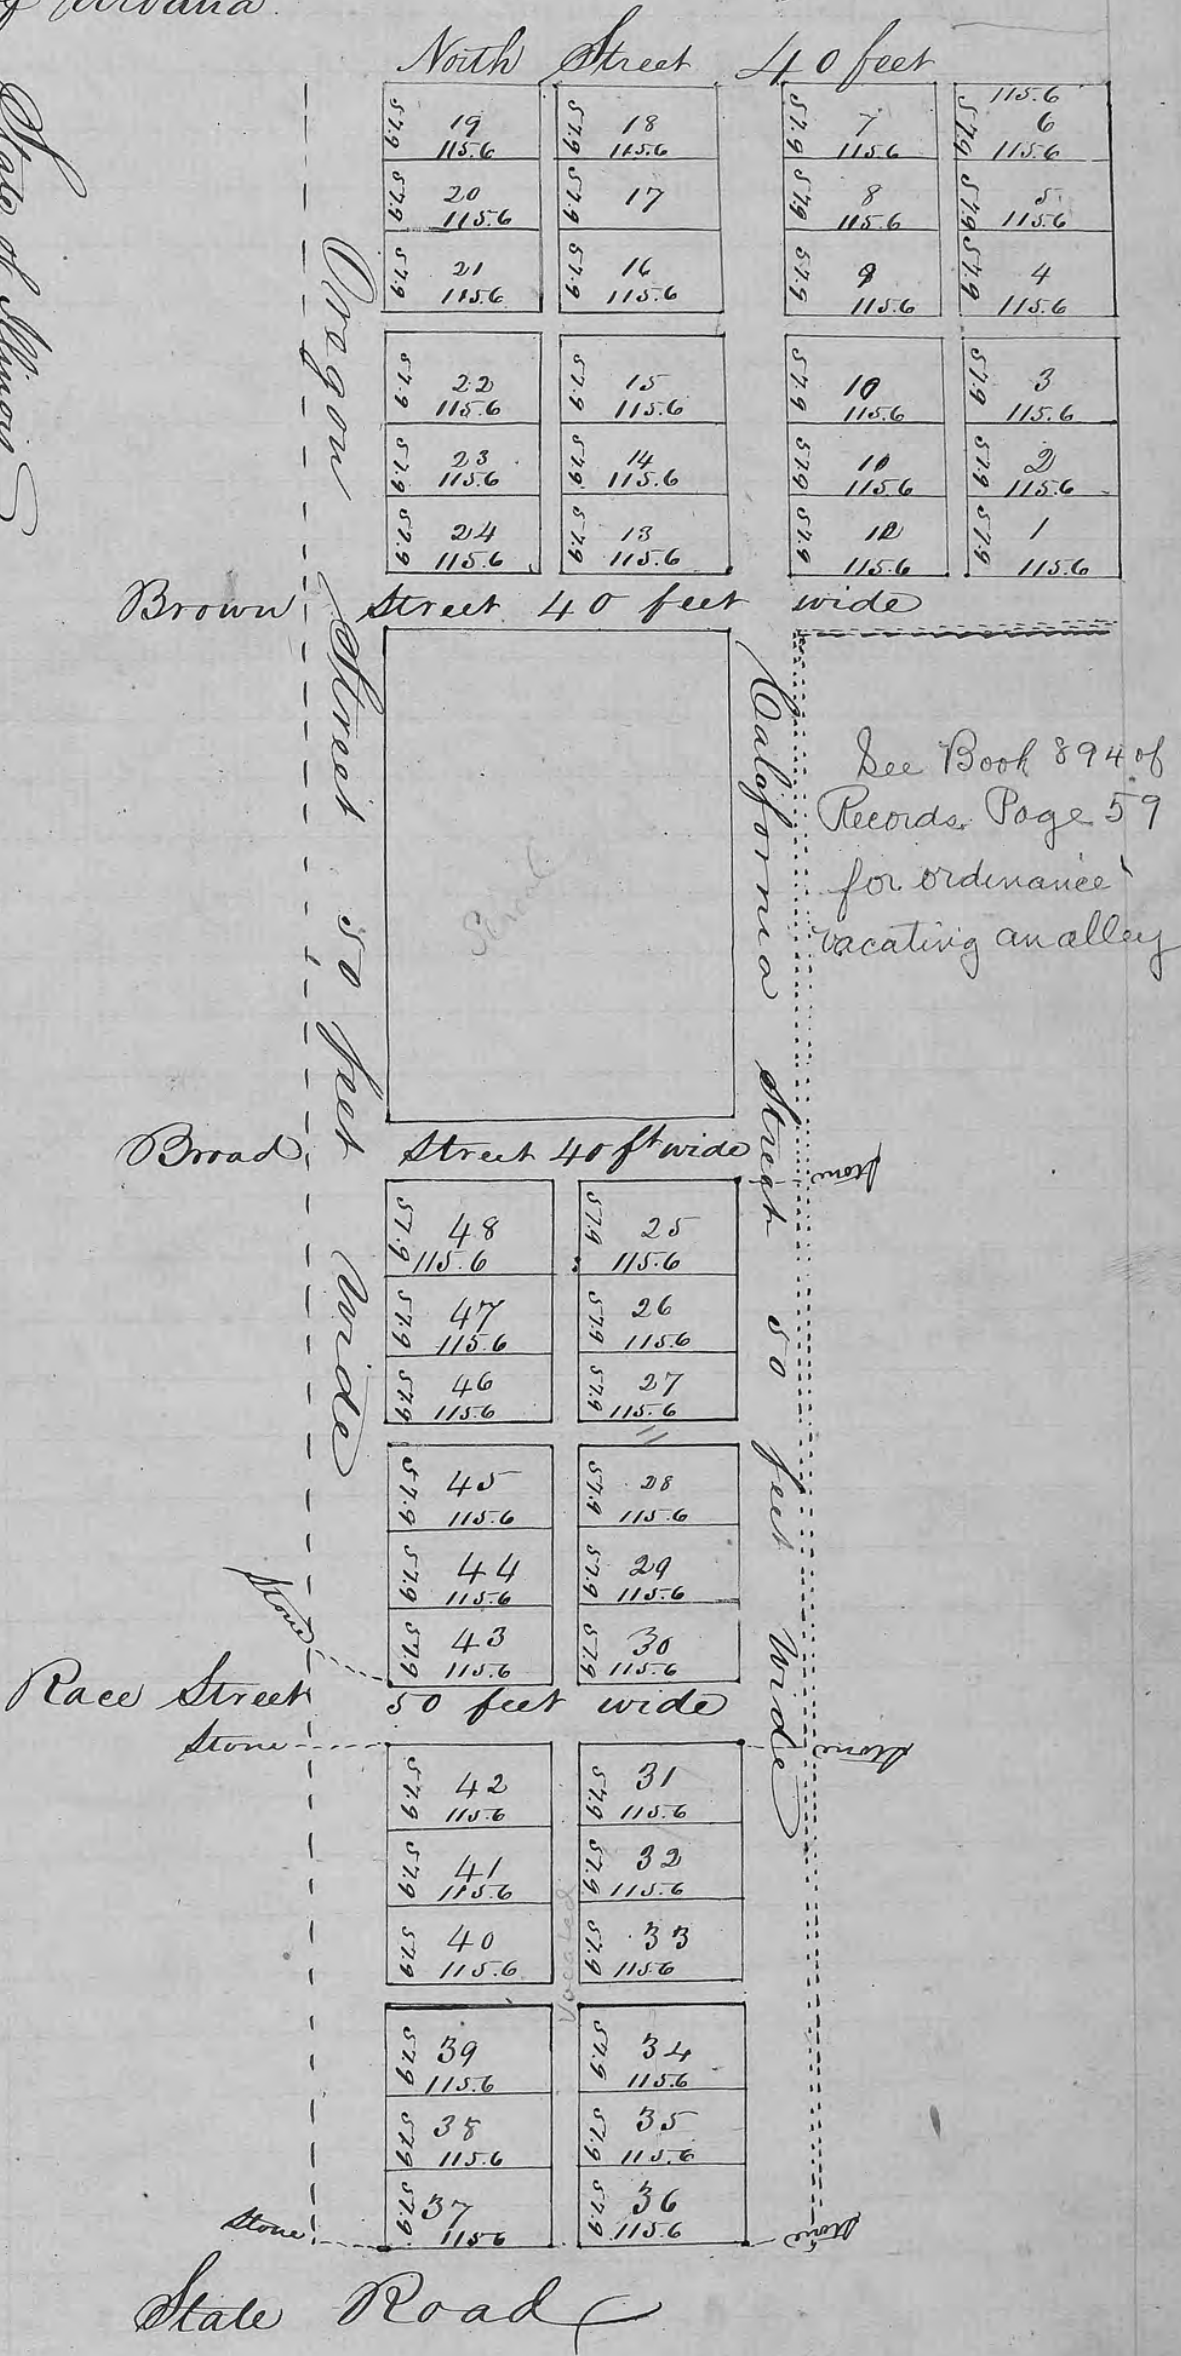 of Urbana.
State of Illinois
North Street 40 feet
57.9 19 115.6
57.9 18 115.6
57.9 7 115.6
115.6
57.9 6 115.6
57.9 20 115.6
57.9 17
57.9 8 115.6
57.9 5 115.6
57.9 21 115.6
57.9 16 115.6
57.9 9 115.6
57.9 4 115.6
57.9 22 115.6
57.9 15 115.6
57.9 10 115.6
57.9 3 115.6
57.9 23 115.6
57.9 14 115.6
57.9 11 115.6
57.9 2 115.6
57.9 24 115.6
57.9 13 115.6
57.9 12 115.6
57.9 1 115.6
Brown Street 40 feet wide
Oregon Street 50 feet wide
California Street 50 feet wide
See Book 894 of
Records Page 59
for ordinance
vacating an alley
Broad Street 40 ft wide
Stone
57.9 48 115.6
57.9 25 115.6
57.9 47 115.6
57.9 26 115.6
57.9 46 115.6
57.9 27 115.6
57.9 45 115.6
57.9 28 115.6
57.9 44 115.6
57.9 29 115.6
Stone
57.9 43 115.6
57.9 30 115.6
Race Street 50 feet wide
Stone
Stone
57.9 42 115.6
57.9 31 115.6
57.9 41 115.6
57.9 32 115.6
57.9 40 115.6
57.9 33 115.6
Vacated
57.9 39 115.6
57.9 34 115.6
57.9 38 115.6
57.9 35 115.6
57.9 37 115.6
57.9 36 115.6
Stone
Stone
State Road